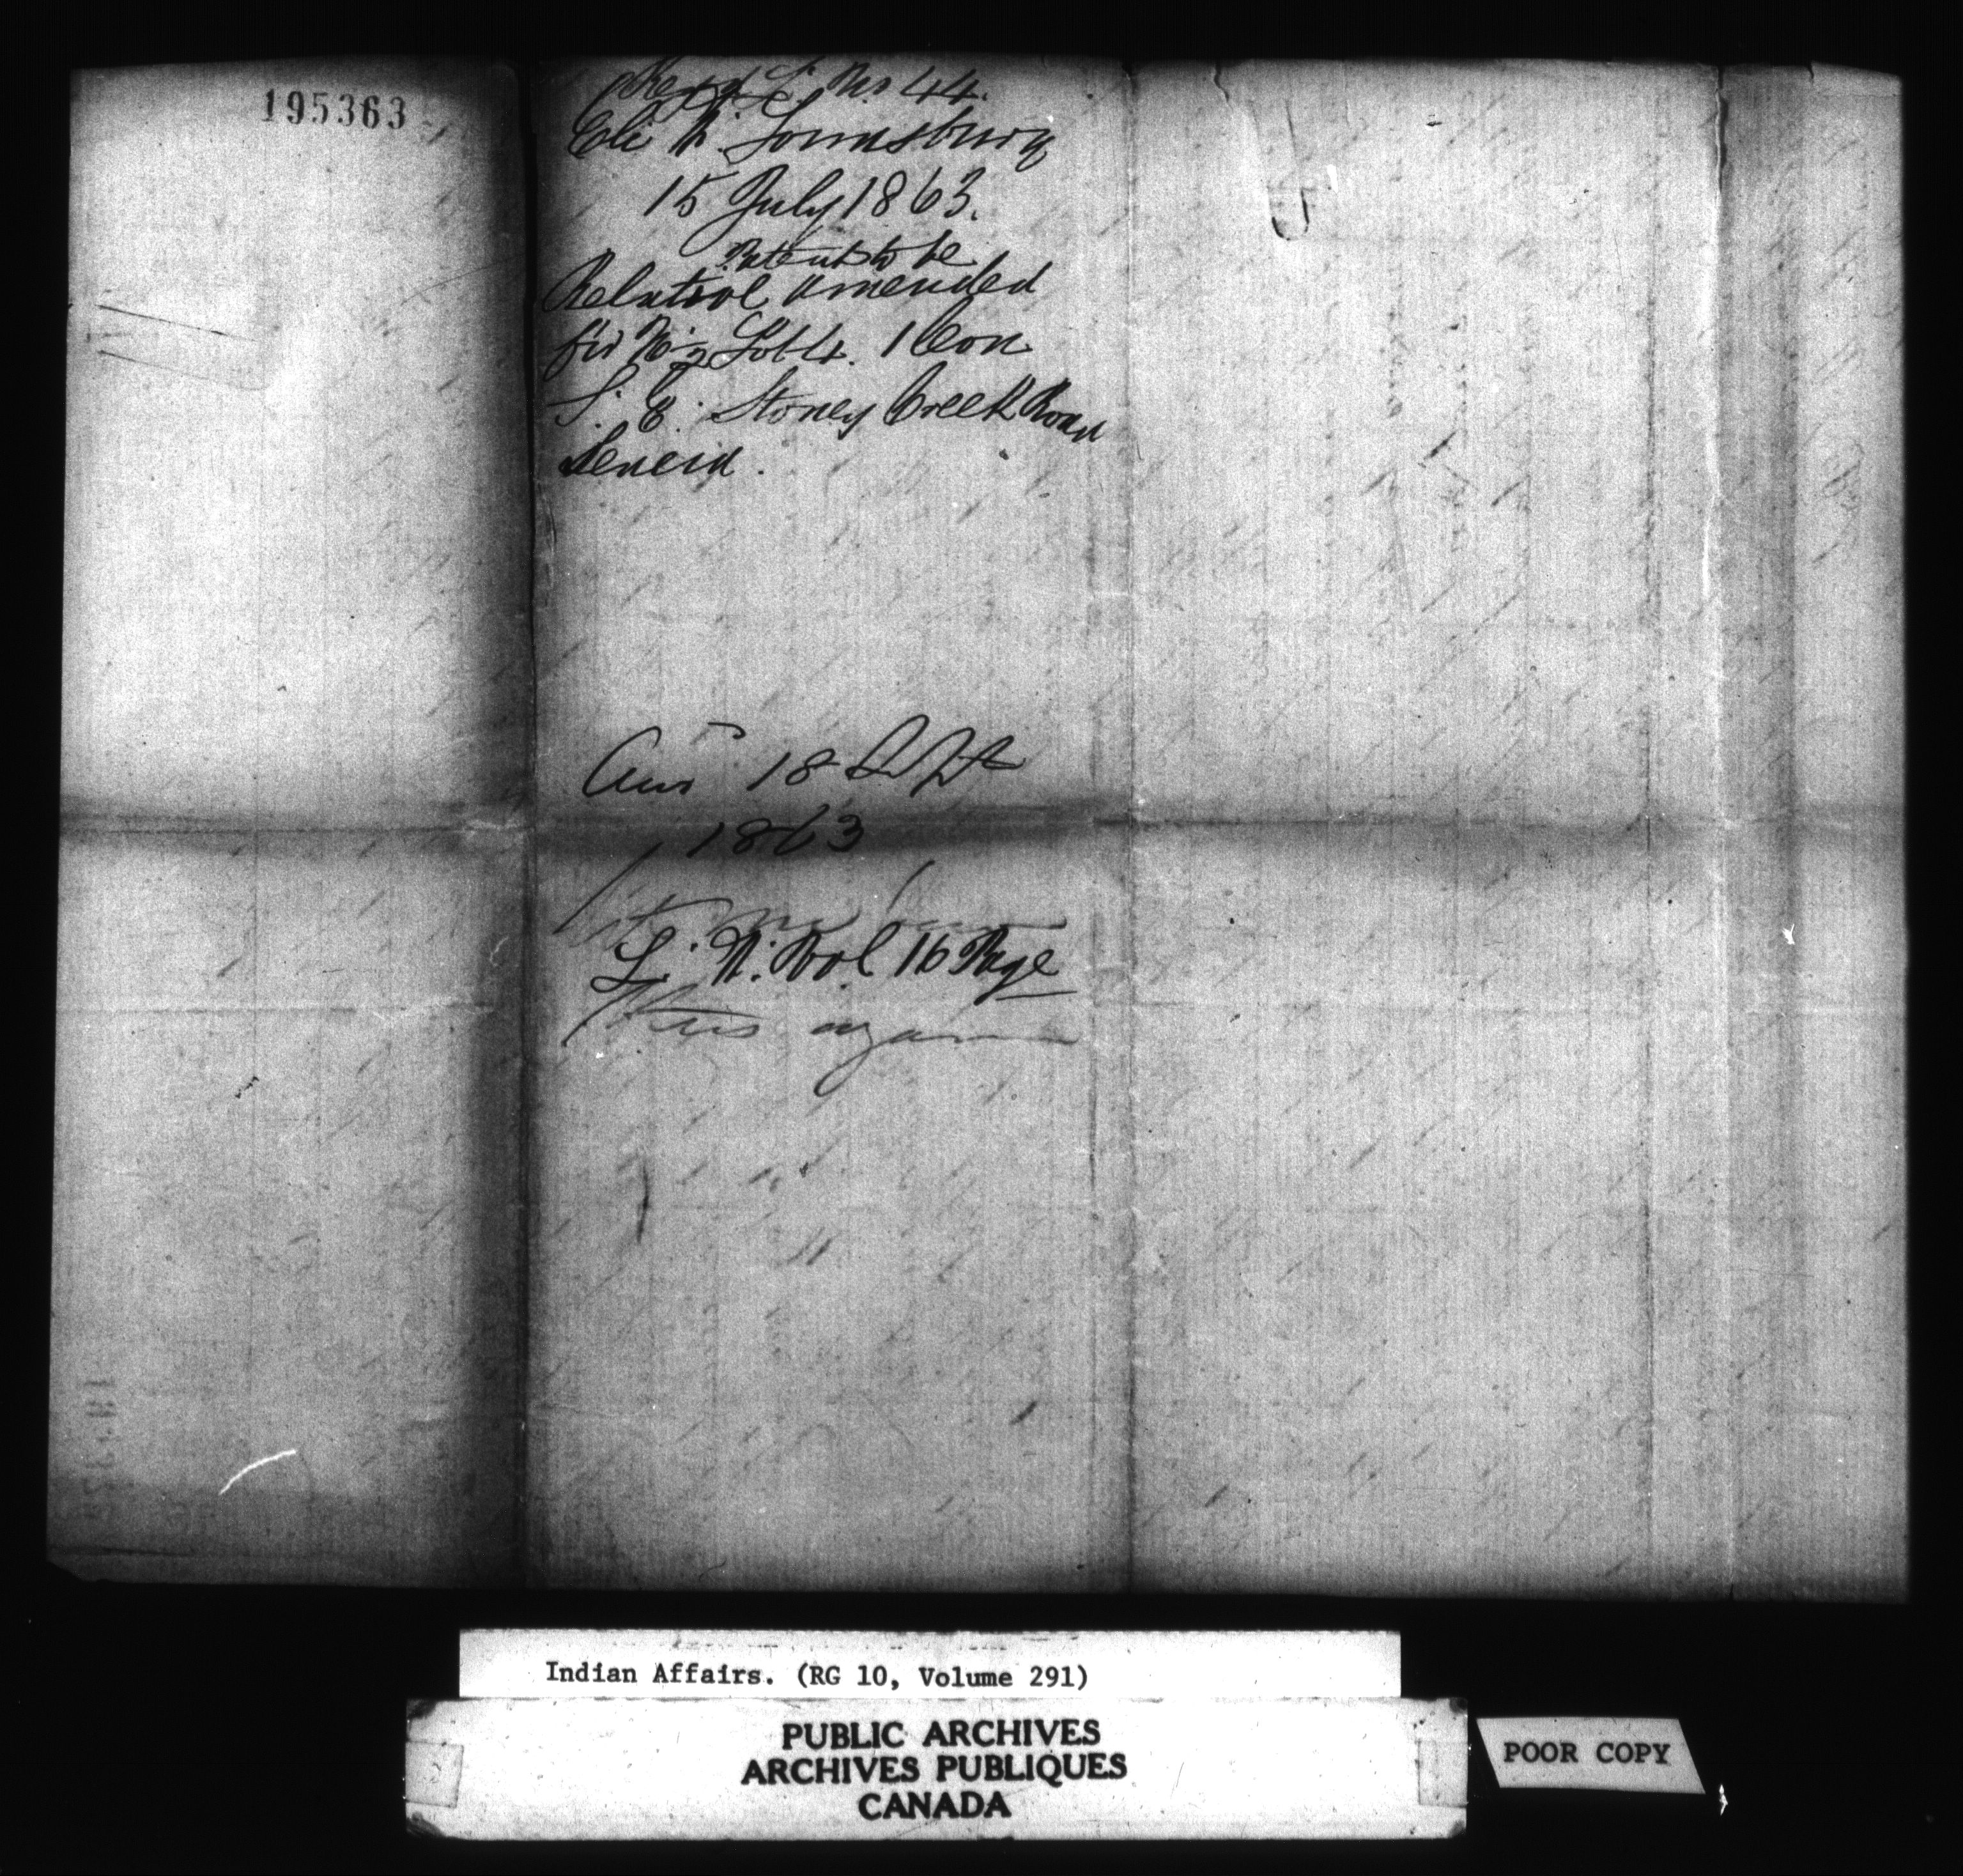 195363
Regd L. No 44.
Eli N. Lounsbury
15 July 1863.
Patent to be
Relative amended
for N ½ Lot 4. 1 Con
S. E. Stoney Creek Road
Seneca.
Ans 18 Sept
1863
L. N. Vol 16 Page
again
Indian Affairs. (RG 10, Volume 291)
PUBLIC ARCHIVES
ARCHIVES PUBLIQUES
CANADA
POOR COPY